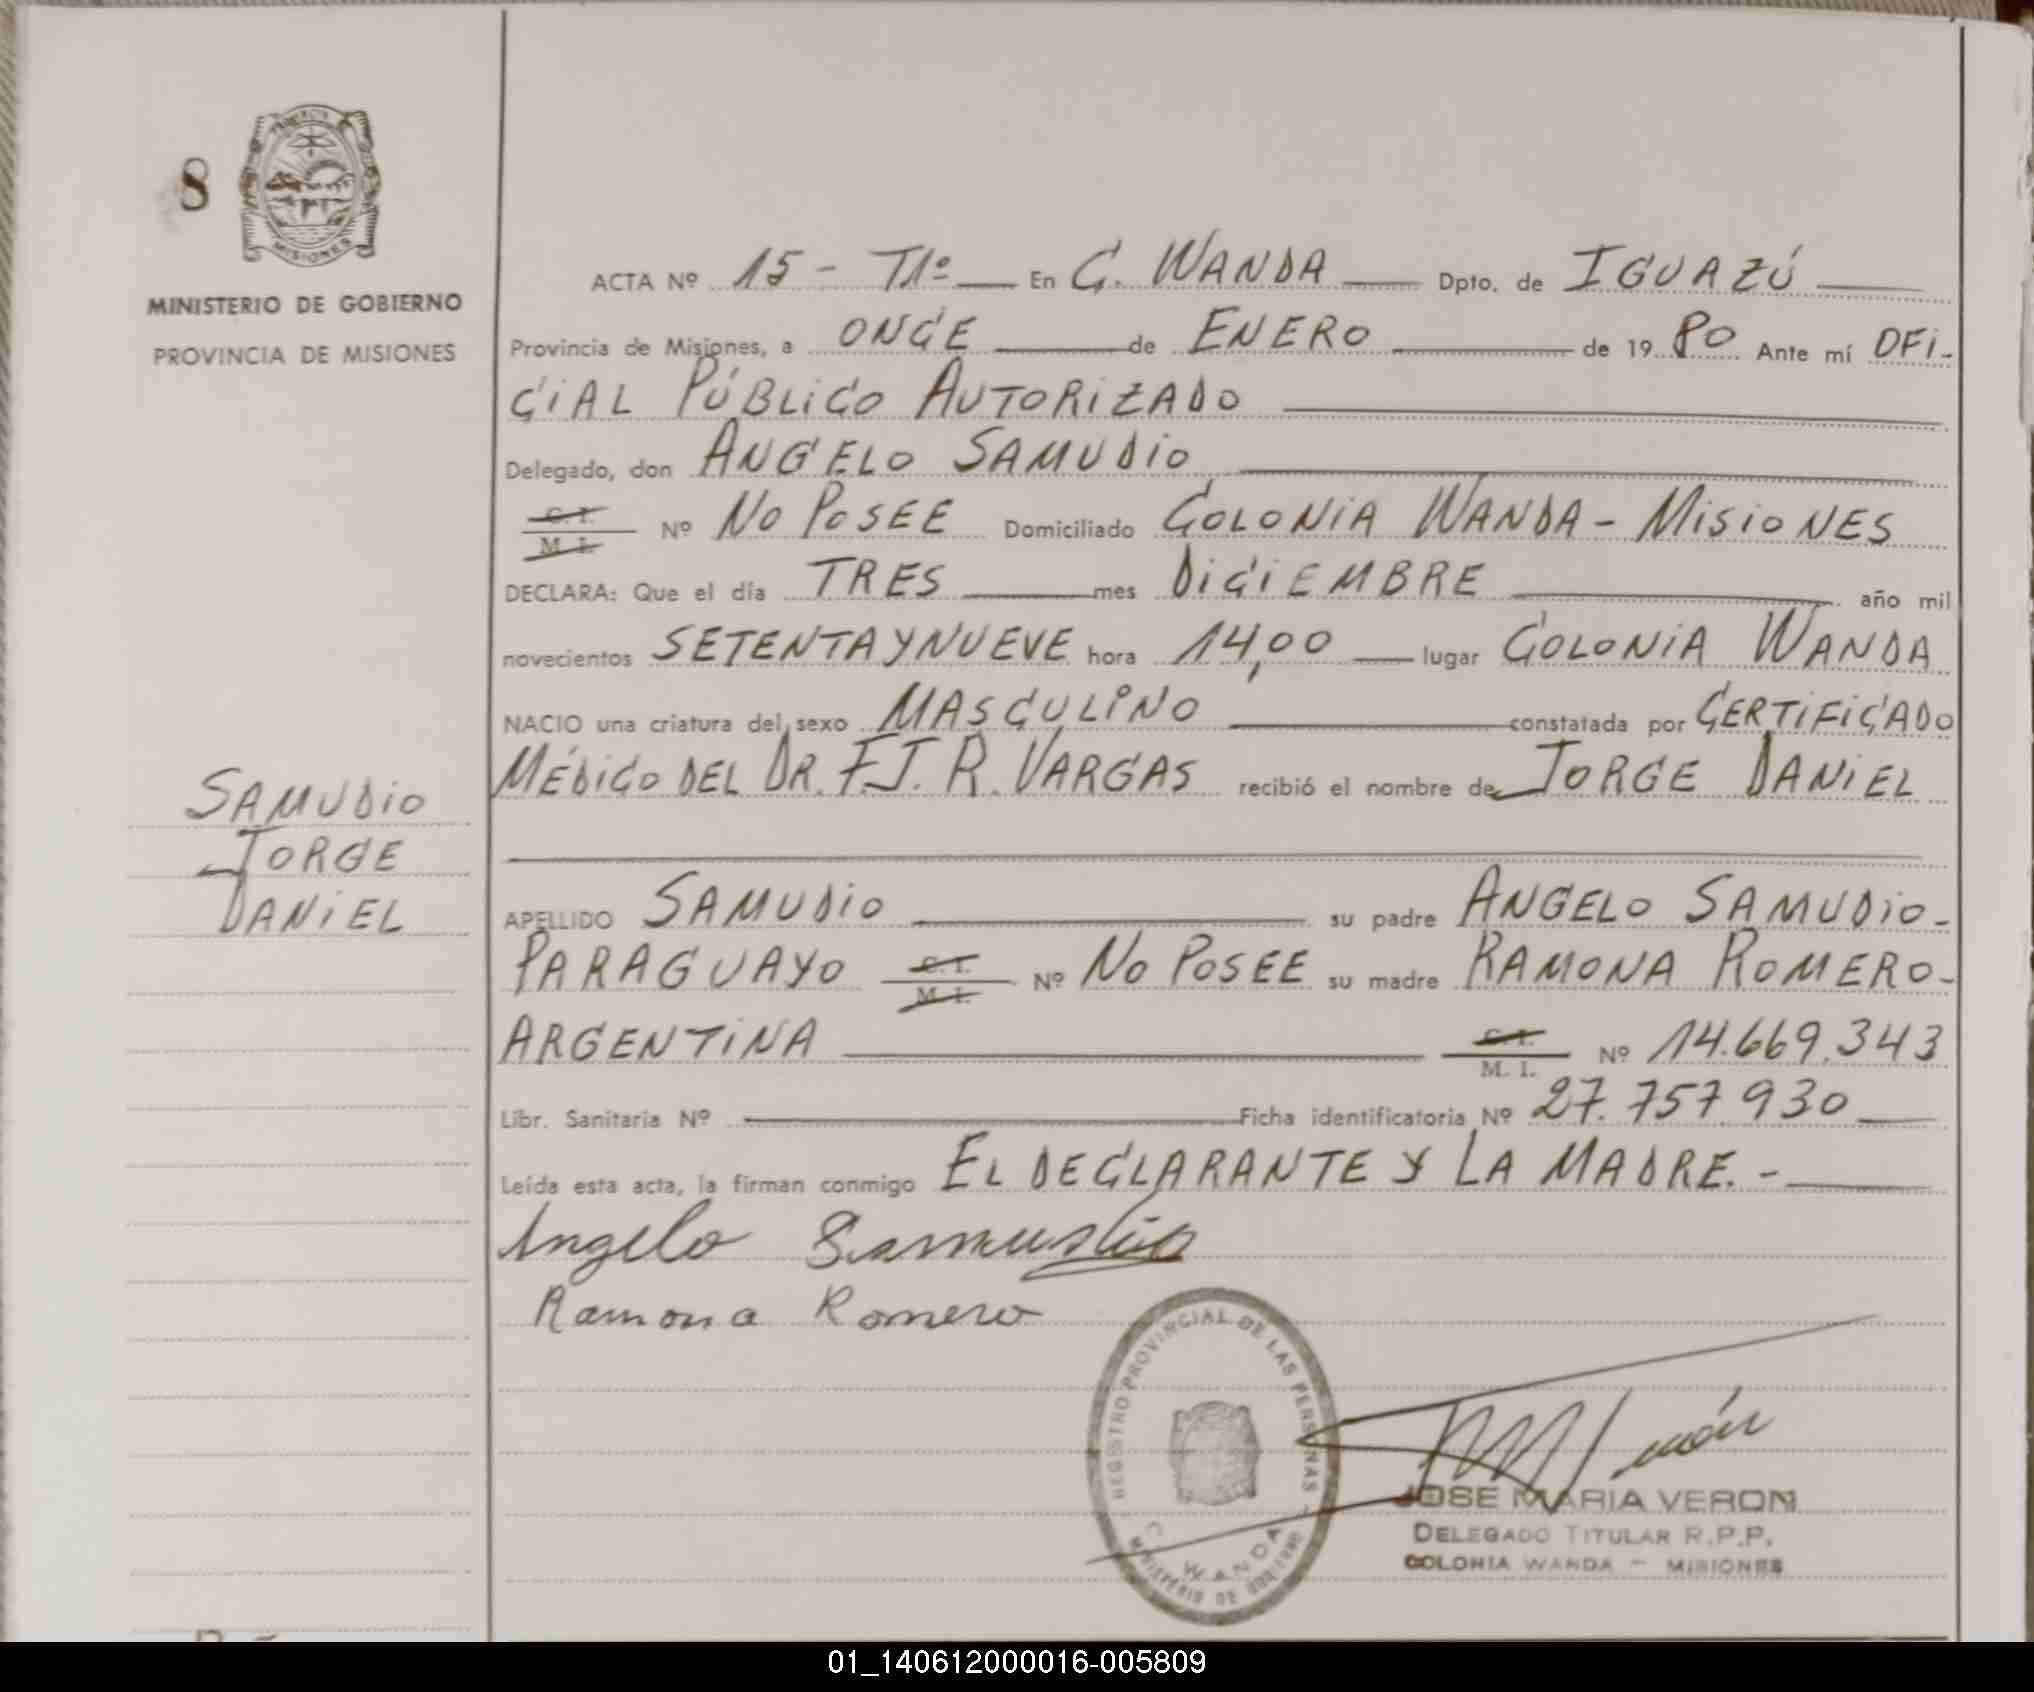 8
MINISTERIO DE GOBIERNO
PROVINCIA DE MISIONES
SAMUDIO
JORGE
DANIEL
ACTA Nº 15 - T1º En C. WANDA Dpto. de IGUAZÚ
Provincia de Misiones, a ONCE de ENERO de 1980 Ante mí OFI-
CIAL PÚBLICO AUTORIZADO
Delegado, don ANGELO SAMUDIO
C. I.
M. I. Nº NO POSEE Domiciliado COLONIA WANDA - MISIONES
DECLARA: Que el día TRES mes DICIEMBRE año mil
novecientos SETENTA Y NUEVE hora 14,00 lugar COLONIA WANDA
NACIO una criatura del sexo MASCULINO constatada por CERTIFICADO
MÉDICO DEL DR. F.J. R. VARGAS recibió el nombre de JORGE DANIEL
APELLIDO SAMUDIO su padre ANGELO SAMUDIO-
PARAGUAYO C. I.
M. I. Nº NO POSEE su madre RAMONA ROMERO-
ARGENTINA C. I.
M. I. Nº 14.669.343
Libr. Sanitaria Nº Ficha identificatoria Nº 27.757.930
Leída esta acta, la firman conmigo EL DECLARANTE Y LA MADRE.-
Angelo Samudio
Ramona Romero
REGISTRO PROVINCIAL DE LAS PERSONAS
C. WANDA
MINISTERIO DE GOBIERNO
JOSE MARIA VERON
DELEGADO TITULAR R.P.P.
COLONIA WANDA - MISIONES
01_140612000016-005809